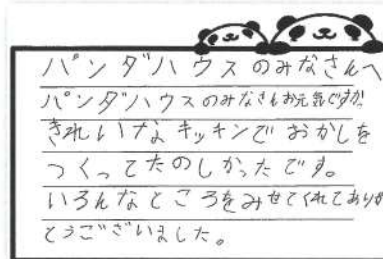 パンダハウスのみなさんへ
パンダハウスのみなさんお元気ですか
きれいなキッキンでおかしを
つくってたのしかったです。
いろんなところをみせてくれてありが
とうございました。